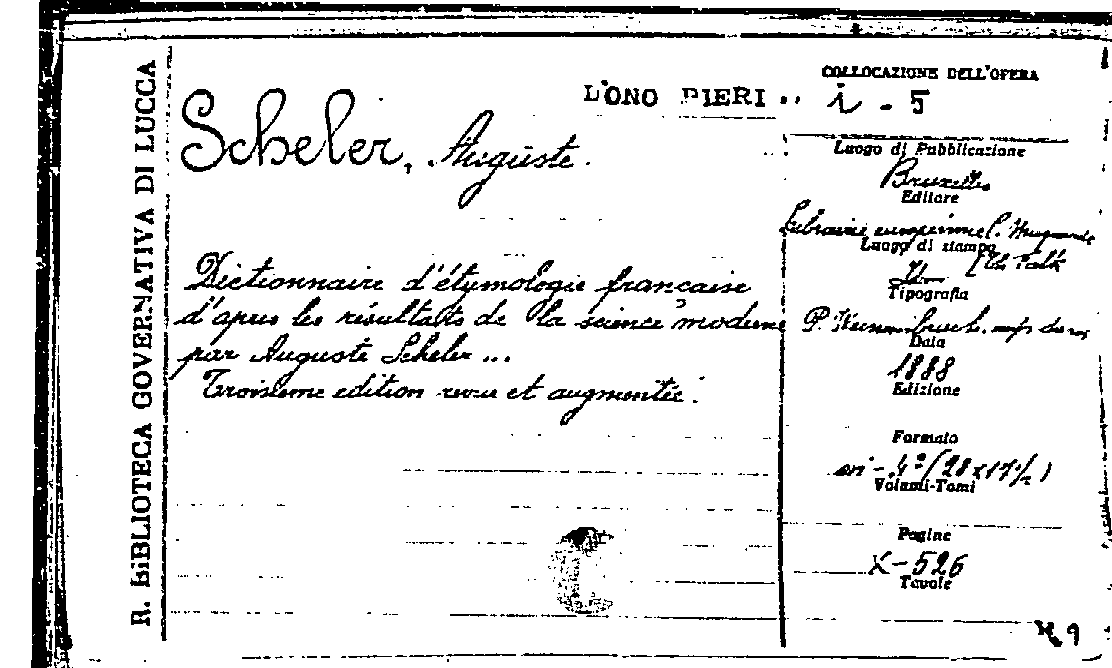 R. BIBLIOTECA GOVERNATIVA DI LUCCA
COLLOCAZIONE DELL'OPERA
DONO PIERI
i - 5
Scheler, Auguste.
Luogo di Pubblicazione
Bruxelles
Editore
Librairie européenne C.
Luogo di stampa
Tipografia
P.
Data
1888
Edizione
Dictionnaire d'étymologie française
d'aprés les résultats de la science moderne
par Auguste Scheler ...
Troisieme edition revue et augmentée.
Formato
in - 4° (28 x 17 1/2)
Volumi-Tomi
Pagine
X - 526
Tavole
C